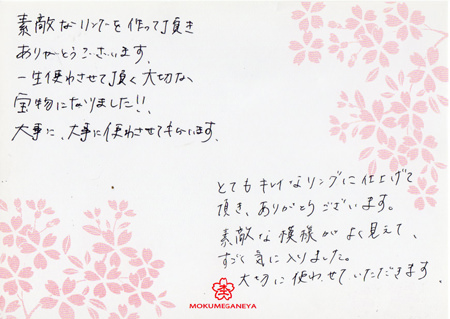 素敵なリングを作って頂き
ありがとうございます。
一生使わせて頂く大切な、
宝物になりました!!
大事に、大事に使わせてもらいます。
とてもキレイなリングに仕上げて
頂き、ありがとうございます。
素敵な模様がよく見えて、
すごく気に入りました。
大切に使わせていただきます。
MOKUMEGANEYA